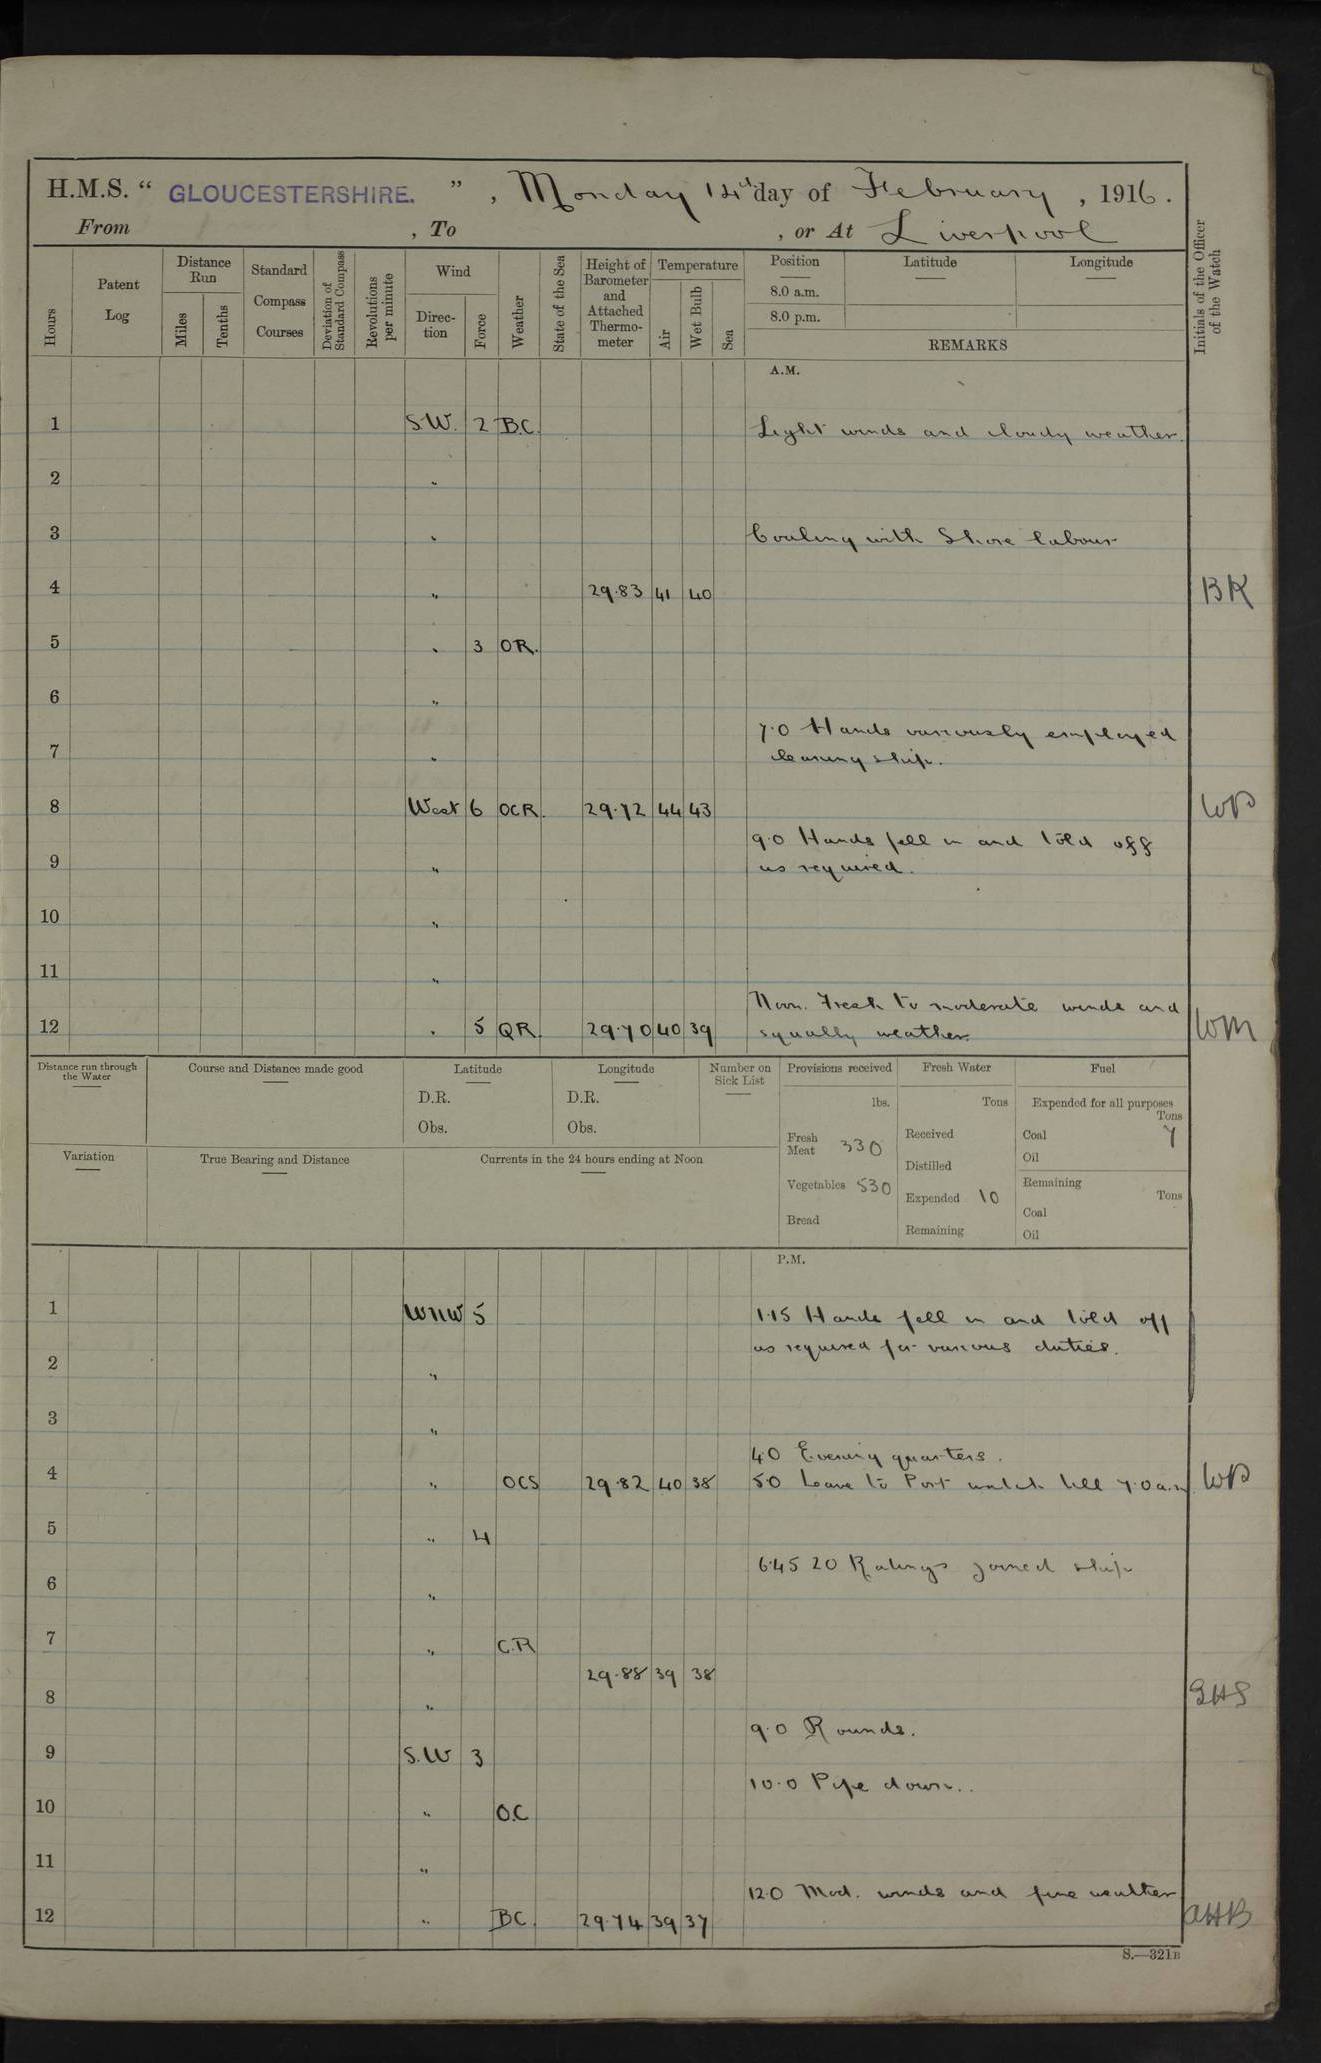 H.M.S. “ GLOUCESTERSHIRE. ” , Monday 14th day of February , 1916 .
From , To , or At Liverpool
Hours
Patent Log
Distance Run
Miles
Tenths
Standard Compass Courses
Deviation of Standard Compass
Revolutions per minute
Wind
Direc- tion
Force
Weather
State of the Sea
Height of Barometer and Attached Thermo- meter
Temperature
Air
Wet Bulb
Sea
Position Latitude Longitude
8.0 a.m.
8.0 p.m.
REMARKS
Initials of the Officer of the Watch
A.M.
1 S.W. 2 B.C. Light winds and cloudy weather.
2 "
3 " Coaling with Shore labour
4 " 29.83 41 40 BK
5 " 3 OR.
6 "
7.0 Hands variously employed
7 " cleaning ship.
8 West 6 OCR. 29.72 44 43 WP
9.0 Hands fell in and told off
9 " as required.
10 "
11 "
Noon. Fresh to moderate winds and
12 " 5 QR. 29.70 40 39 squally weather. WM
Distance run through the Water
Course and Distance made good
Latitude
D.R.
Obs.
Longitude
D.R.
Obs.
Number on Sick List
Provisions received
lbs.
Fresh Meat 330
Vegetables 530
Bread
Fresh Water
Tons
Received
Distilled
Expended 10
Remaining
Fuel
Expended for all purposes
Tons
Coal 7
Oil
Remaining
Tons
Coal
Oil
Variation
True Bearing and Distance
Currents in the 24 hours ending at Noon
P.M.
1 WNW 5 1.15 Hands fell in and told off
as required for various duties.
2 "
3 "
4.0 Evening quarters.
4 " OCS 29.82 40 38 5.0 Leave to Port watch till 7.0 a.m. WP
5 " 4
6.45 20 Ratings joined ship
6 "
7 " C.R
29.88 39 38
8 "
9.0 Rounds.
9 S.W 3
10.0 Pipe down.
10 " O.C
11 "
12.0 Mod. winds and fine weather
12 " BC. 29.74 39 37 AHB
S.—321B